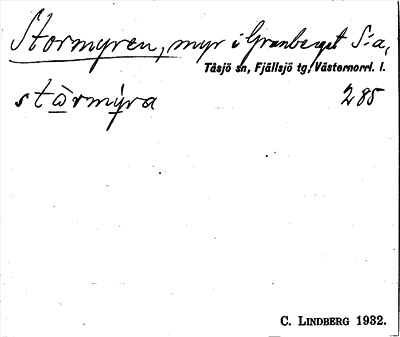 Stormyren, myr i Granberget S:a,
Tåsjö sn, Fjällsjö tg, Västernorrl. l.
stὼrmýra 285
C. LINDBERG 1932.